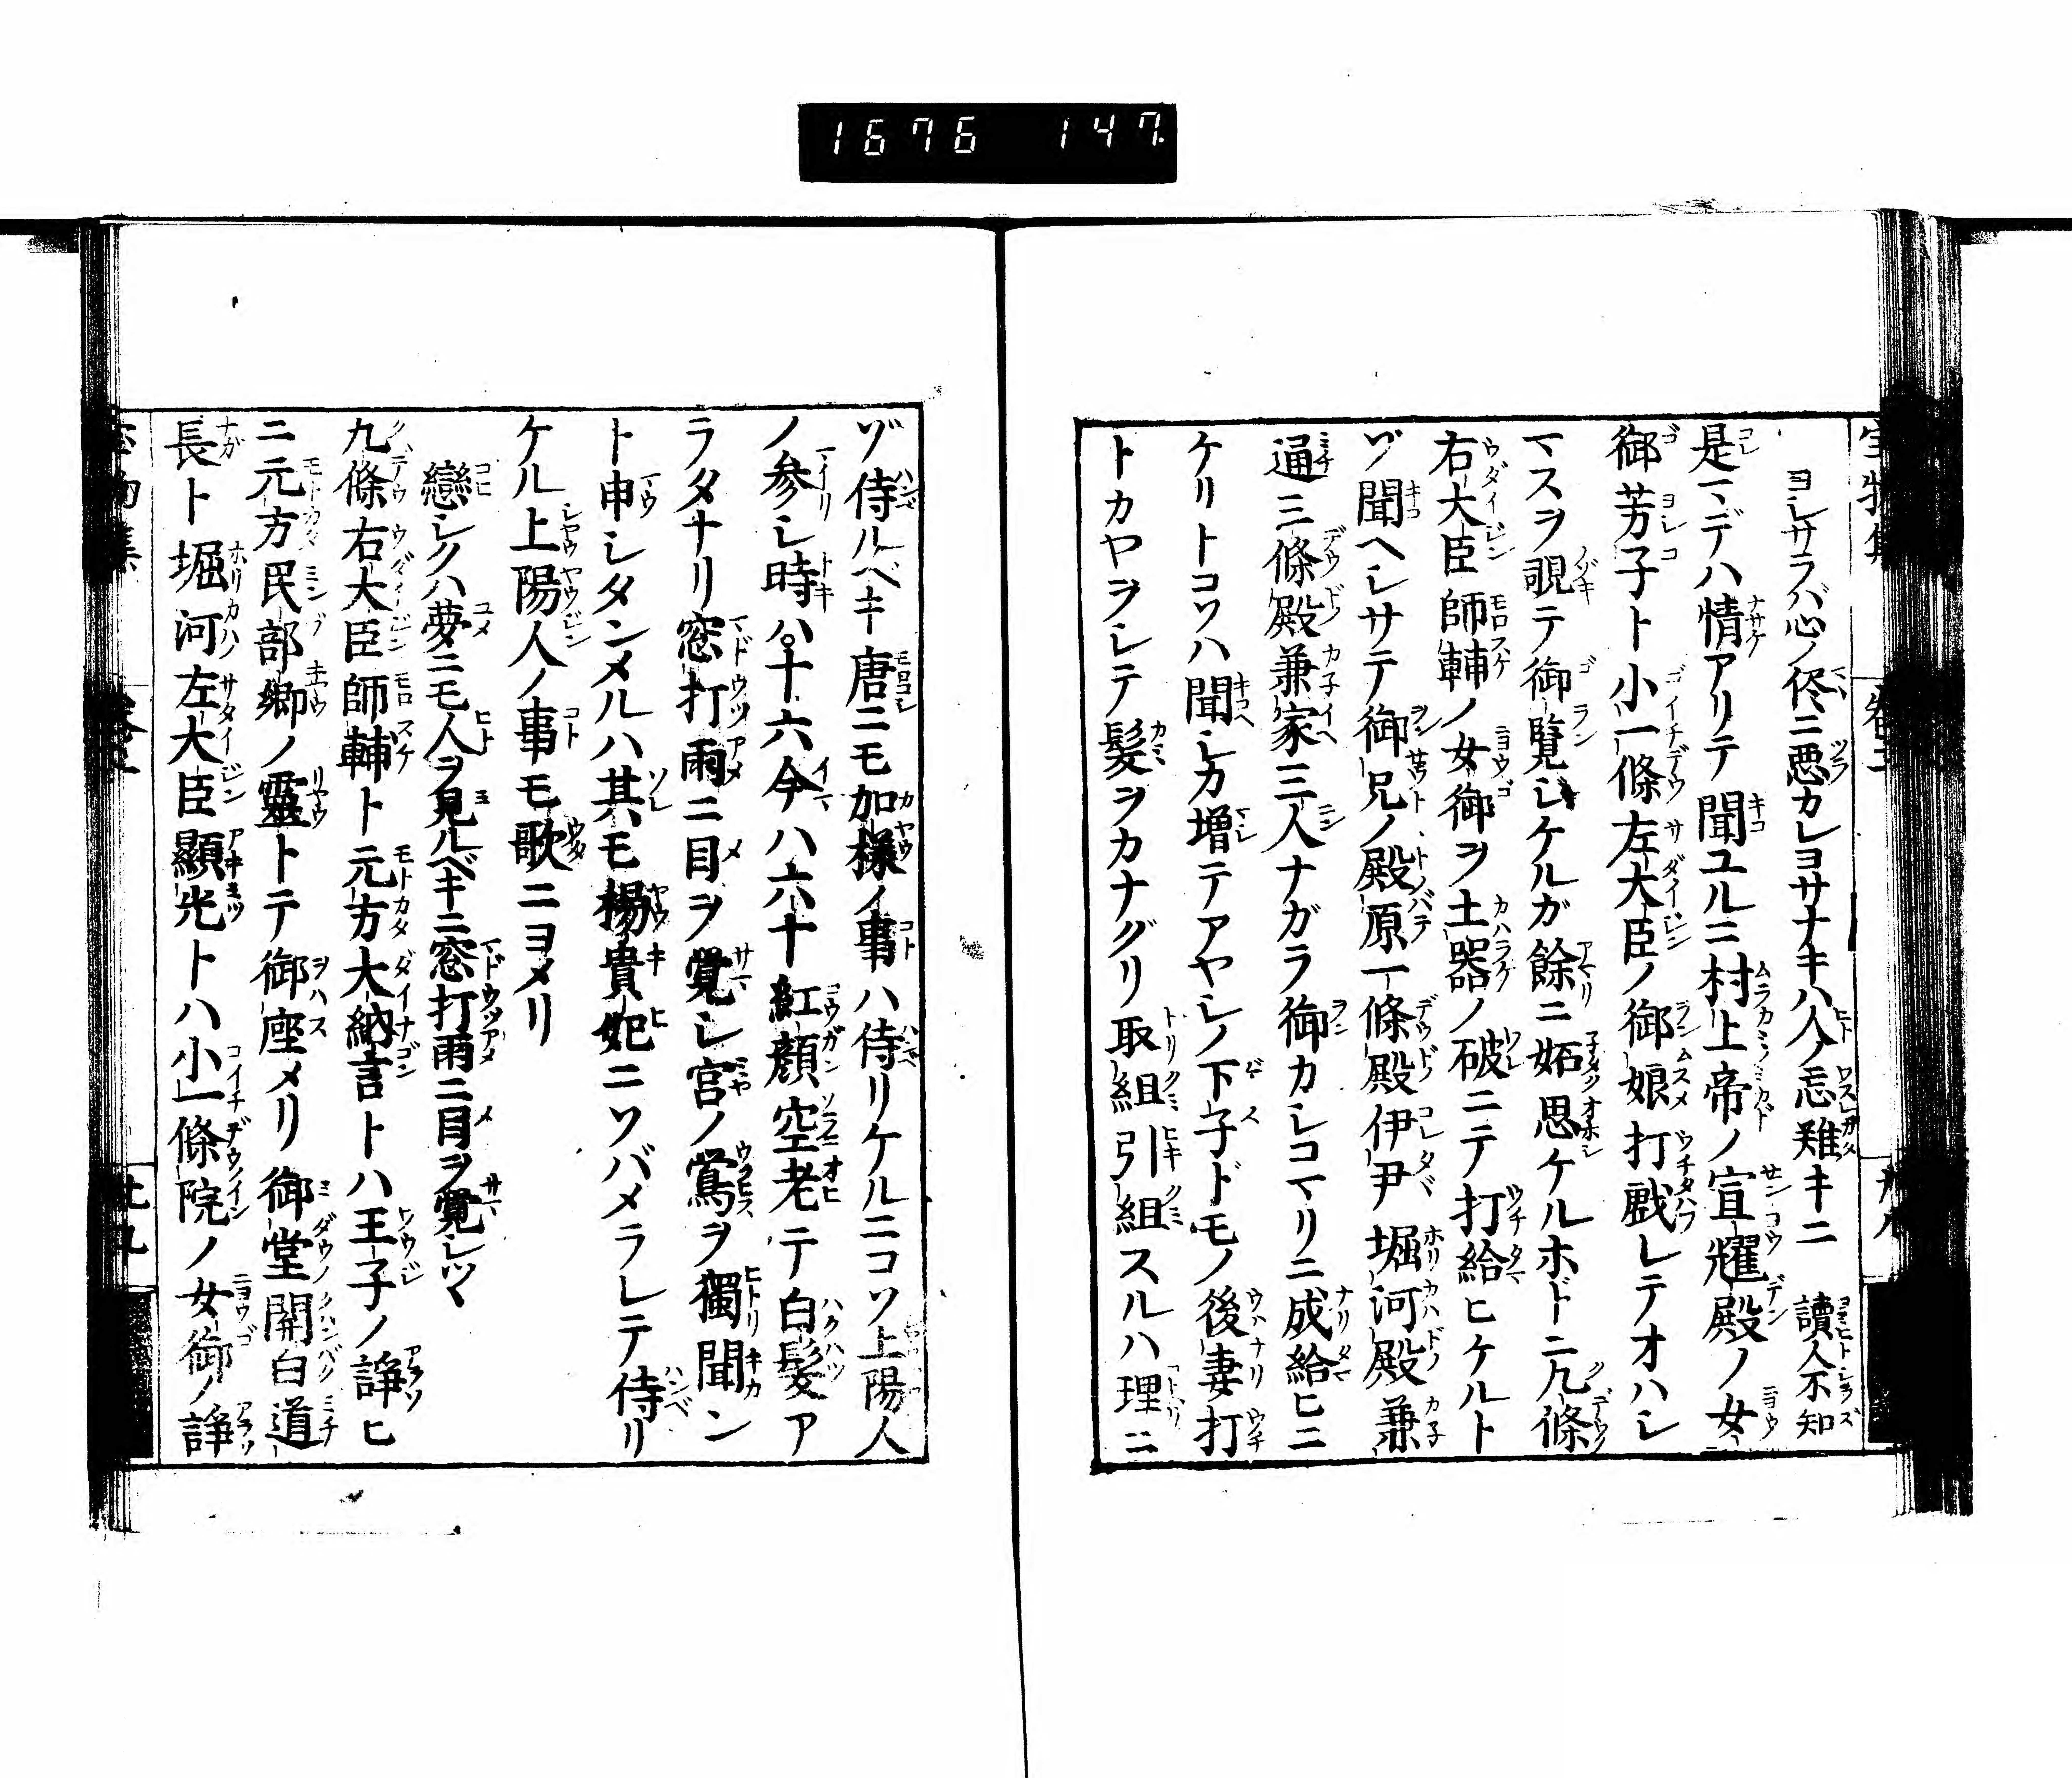 1676 147
ヨシサラバ心ノ侭ニ悪カレヨサナキハ人ノ忘難キニ 讀人不知
是マデハ情アリテ聞ユルニ村上帝ノ宣耀殿ノ女
御芳子ト小一條左大臣ノ御娘打戯レテオハシ
マスヲ覗テ御覧シケルガ餘ニ妬思ケルホドニ九條
右大臣師輔ノ女御ヲ土器ノ破ニテ打給ヒケルト
ゾ聞ヘシサテ御兄ノ殿原一條殿伊尹堀河殿兼
通三條殿兼家三人ナガラ御カシコマリニ成給ヒニ
ケリトコソハ聞シカ増テアヤシノ下子ドモノ後妻打
トカヤヲシテ髪ヲカナグリ取組引組スルハ理ニ
ゾ侍ルベキ唐ニモ加樣ノ事ハ侍リケルニコソ上陽人
ノ参シ時ハ十六今ハ六十紅顔空老テ白髪ア
ラタナリ窓打雨ニ目ヲ覺シ宮ノ鶯ヲ獨聞ン
ト申シタンメルハ其モ楊貴妃ニソバメラレテ侍リ
ケル上陽人ノ事モ歌ニヨメリ
戀シクハ夢ニモ人ヲ見ルベキニ窓打雨ニ目ヲ覺シツヽ
九條右大臣師輔ト元方大納言トハ王子ノ諍ヒ
ニ元方民部卿ノ靈トテ御座メリ御堂開白道
長ト堀河左大臣顯光トハ小一條院ノ女御ノ諍